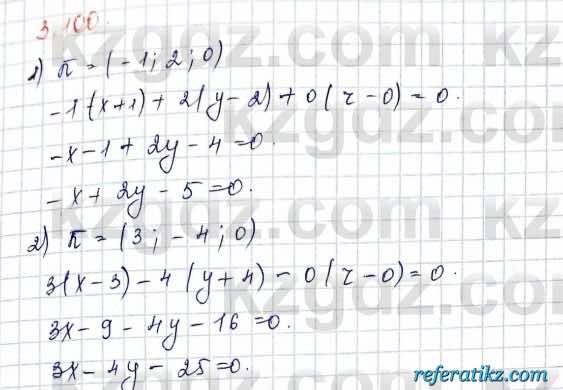 3.100.
1) n = (-1; 2; 0)
-1(x+1) + 2(y-2) + 0(z-0) = 0.
-x-1+2y-4=0.
-x+2y-5=0.
2) n = (3; -4; 0)
3(x-3)-4(y+4)-0(z-0)=0.
3x-9-4y-16=0.
3x-4y-25=0.
kzgdz.com
referatikz.com